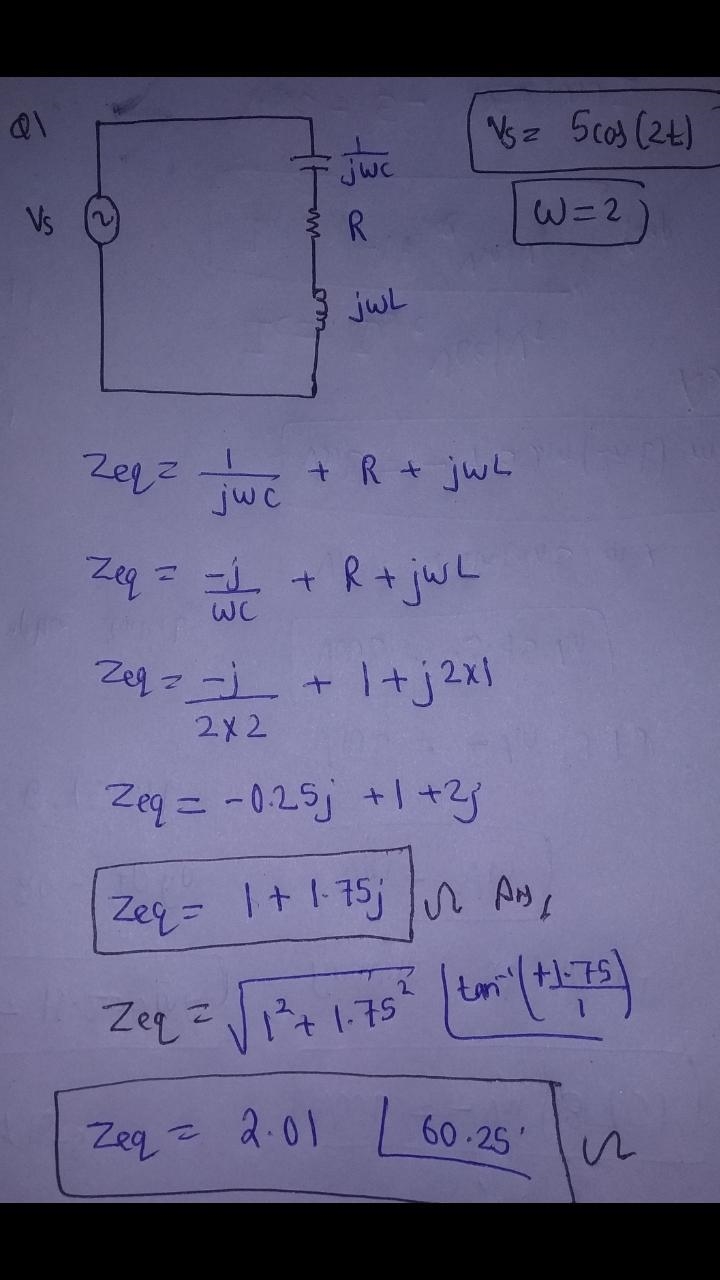 Q1
1/jwc
Vs = 5cos(2t)
Vs
R
W=2
jwL
Zeq = 1/jwc + R + jwL
Zeq = -j/wc + R + jwL
Zeq = -j/2x2 + 1 + j2x1
Zeq = -0.25j + 1 + 2j
Zeq = 1 + 1.75j Ω Ans
Zeq = √1² + 1.75² ∠tan⁻¹(+1.75/1)
Zeq = 2.01 ∠60.25° Ω